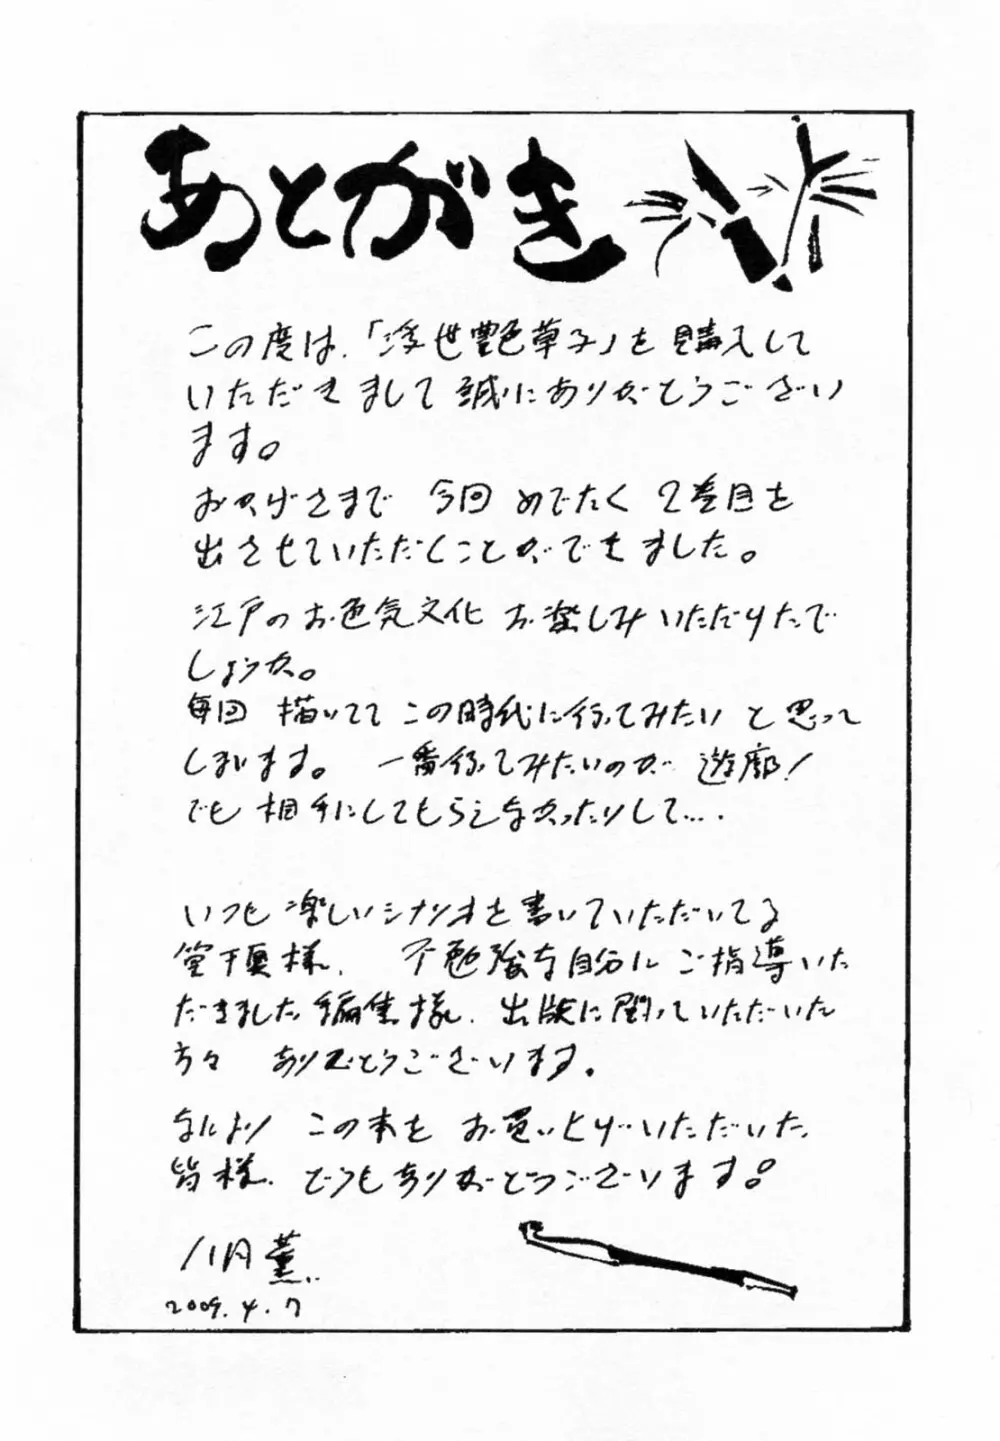 あとがき
この度は、「浮世艶草子」を購入して
いただきまして誠にありがとうござい
ます。
おかげさまで 今回 めでたく 2巻目を
出させていただくことができました。
江戸のお色気文化 お楽しみいただけたで
しょうか。
毎回 描いてて この時代に行ってみたい と思って
しまいます。 一番行ってみたいのが 遊廓!
でも 相手にしてもらえなかったりして….
いつも 楽しいシナリオを書いていただいてる
篁千夏様、 不勉強な自分に ご指導いた
だきました編集様、出版に関っていただいた
方々 ありがとうございます.
なにより この本を お買いとげいただいた、
皆様、どうもありがとうございます。
八月薫
2009.4.7